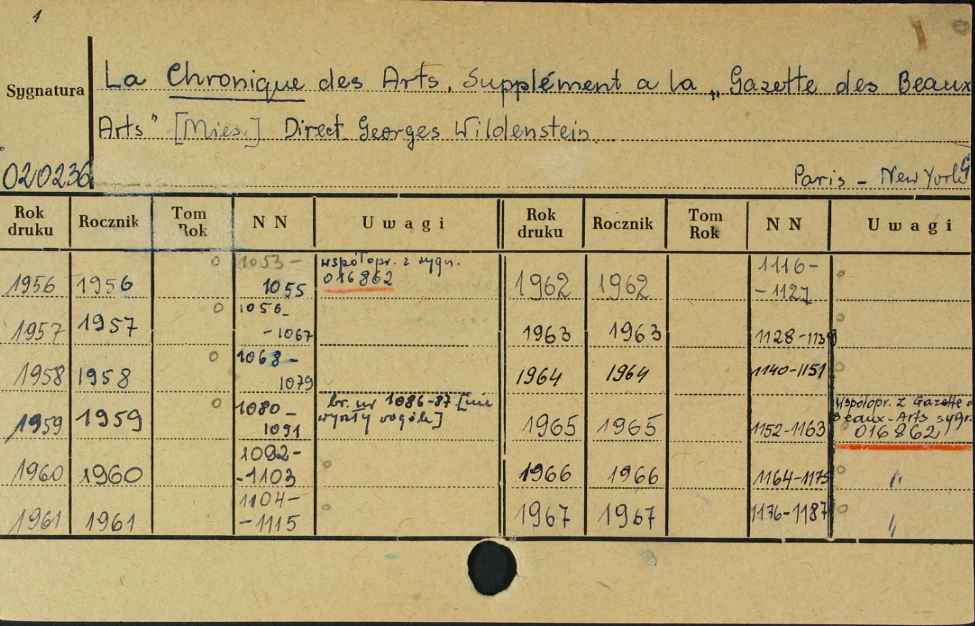 1
Sygnatura
La Chronique des Arts. Supplément a la „Gazette des Beaux
Arts" [Mies.] Direct Georges Wildenstein.
020236
Paris - New York
Rok druku Rocznik Tom Rok N N Uwagi Rok druku Rocznik Tom Rok N N Uwagi
1956 1956 1053-1055 współopr. z sygn. 016862
1957 1957 1056-1067
1958 1958 1068-1079
1959 1959 1080-1091 br. nr 1086-87 [nie wyszły wogóle]
1960 1960 1092-1103
1961 1961 1104-1115
1962 1962 1116-1127
1963 1963 1128-1139
1964 1964 1140-1151
1965 1965 1152-1163 współopr. z Gazette d Beaux-Arts sygn. 016862
1966 1966 1164-1175 "
1967 1967 1176-1187 "